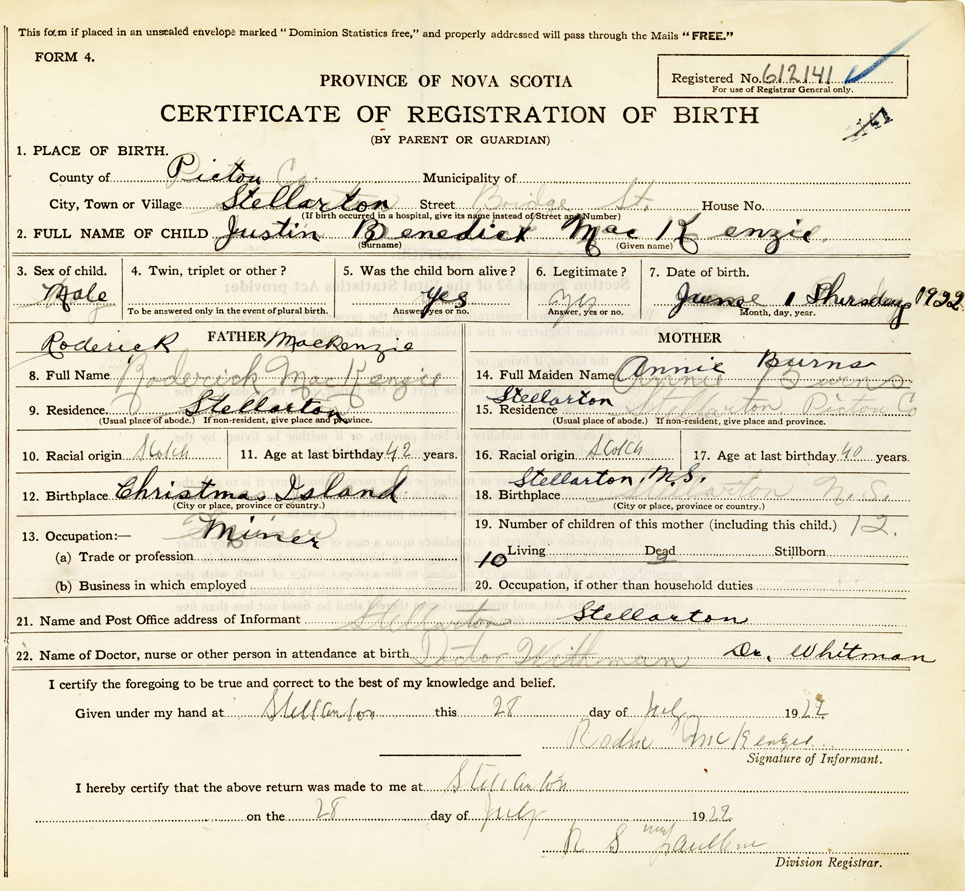 This form if placed in an unsealed envelope marked "Dominion Statistics free," and properly addressed will pass through the Mails "FREE."
FORM 4.
Registered No. 612141
For use of Registrar General only.
PROVINCE OF NOVA SCOTIA
CERTIFICATE OF REGISTRATION OF BIRTH
(BY PARENT OR GUARDIAN)
1. PLACE OF BIRTH.
County of Pictou Co. Municipality of
City, Town or Village Stellarton Street Bridge St. House No.
(If birth occurred in a hospital, give its name instead of Street and Number)
2. FULL NAME OF CHILD Justin Benedict Mac Kenzie
(Surname) (Given name)
3. Sex of child. 4. Twin, triplet or other? 5. Was the child born alive? 6. Legitimate? 7. Date of birth.
Male Yes Yes June 1 Thursday 1922
To be answered only in the event of plural birth. Answer, yes or no. Answer, yes or no. Month, day, year.
FATHER MOTHER
Roderick MacKenzie Annie Burns
8. Full Name Roderick MacKenzie 14. Full Maiden Name Annie Burns
9. Residence. Stellarton 15. Residence Stellarton Stellarton Pictou Co
(Usual place of abode.) If non-resident, give place and province. (Usual place of abode.) If non-resident, give place and province.
10. Racial origin Scotch 11. Age at last birthday 42 years. 16. Racial origin Scotch 17. Age at last birthday 40 years.
12. Birthplace Christmas Island 18. Birthplace Stellarton, N.S. Stellarton N.S.
(City or place, province or country.) (City or place, province or country.)
13. Occupation:— Miner 19. Number of children of this mother (including this child.) 12.
(a) Trade or profession 10 Living Dead 2 Stillborn
(b) Business in which employed 20. Occupation, if other than household duties
21. Name and Post Office address of Informant Stellarton Stellarton
22. Name of Doctor, nurse or other person in attendance at birth Doctor Withman Dr. Whitman
I certify the foregoing to be true and correct to the best of my knowledge and belief.
Given under my hand at Stellarton this 28 day of July 1922
McKenzie
Signature of Informant.
I hereby certify that the above return was made to me at Stellarton
on the 28 day of July 1922.
R S
Division Registrar.